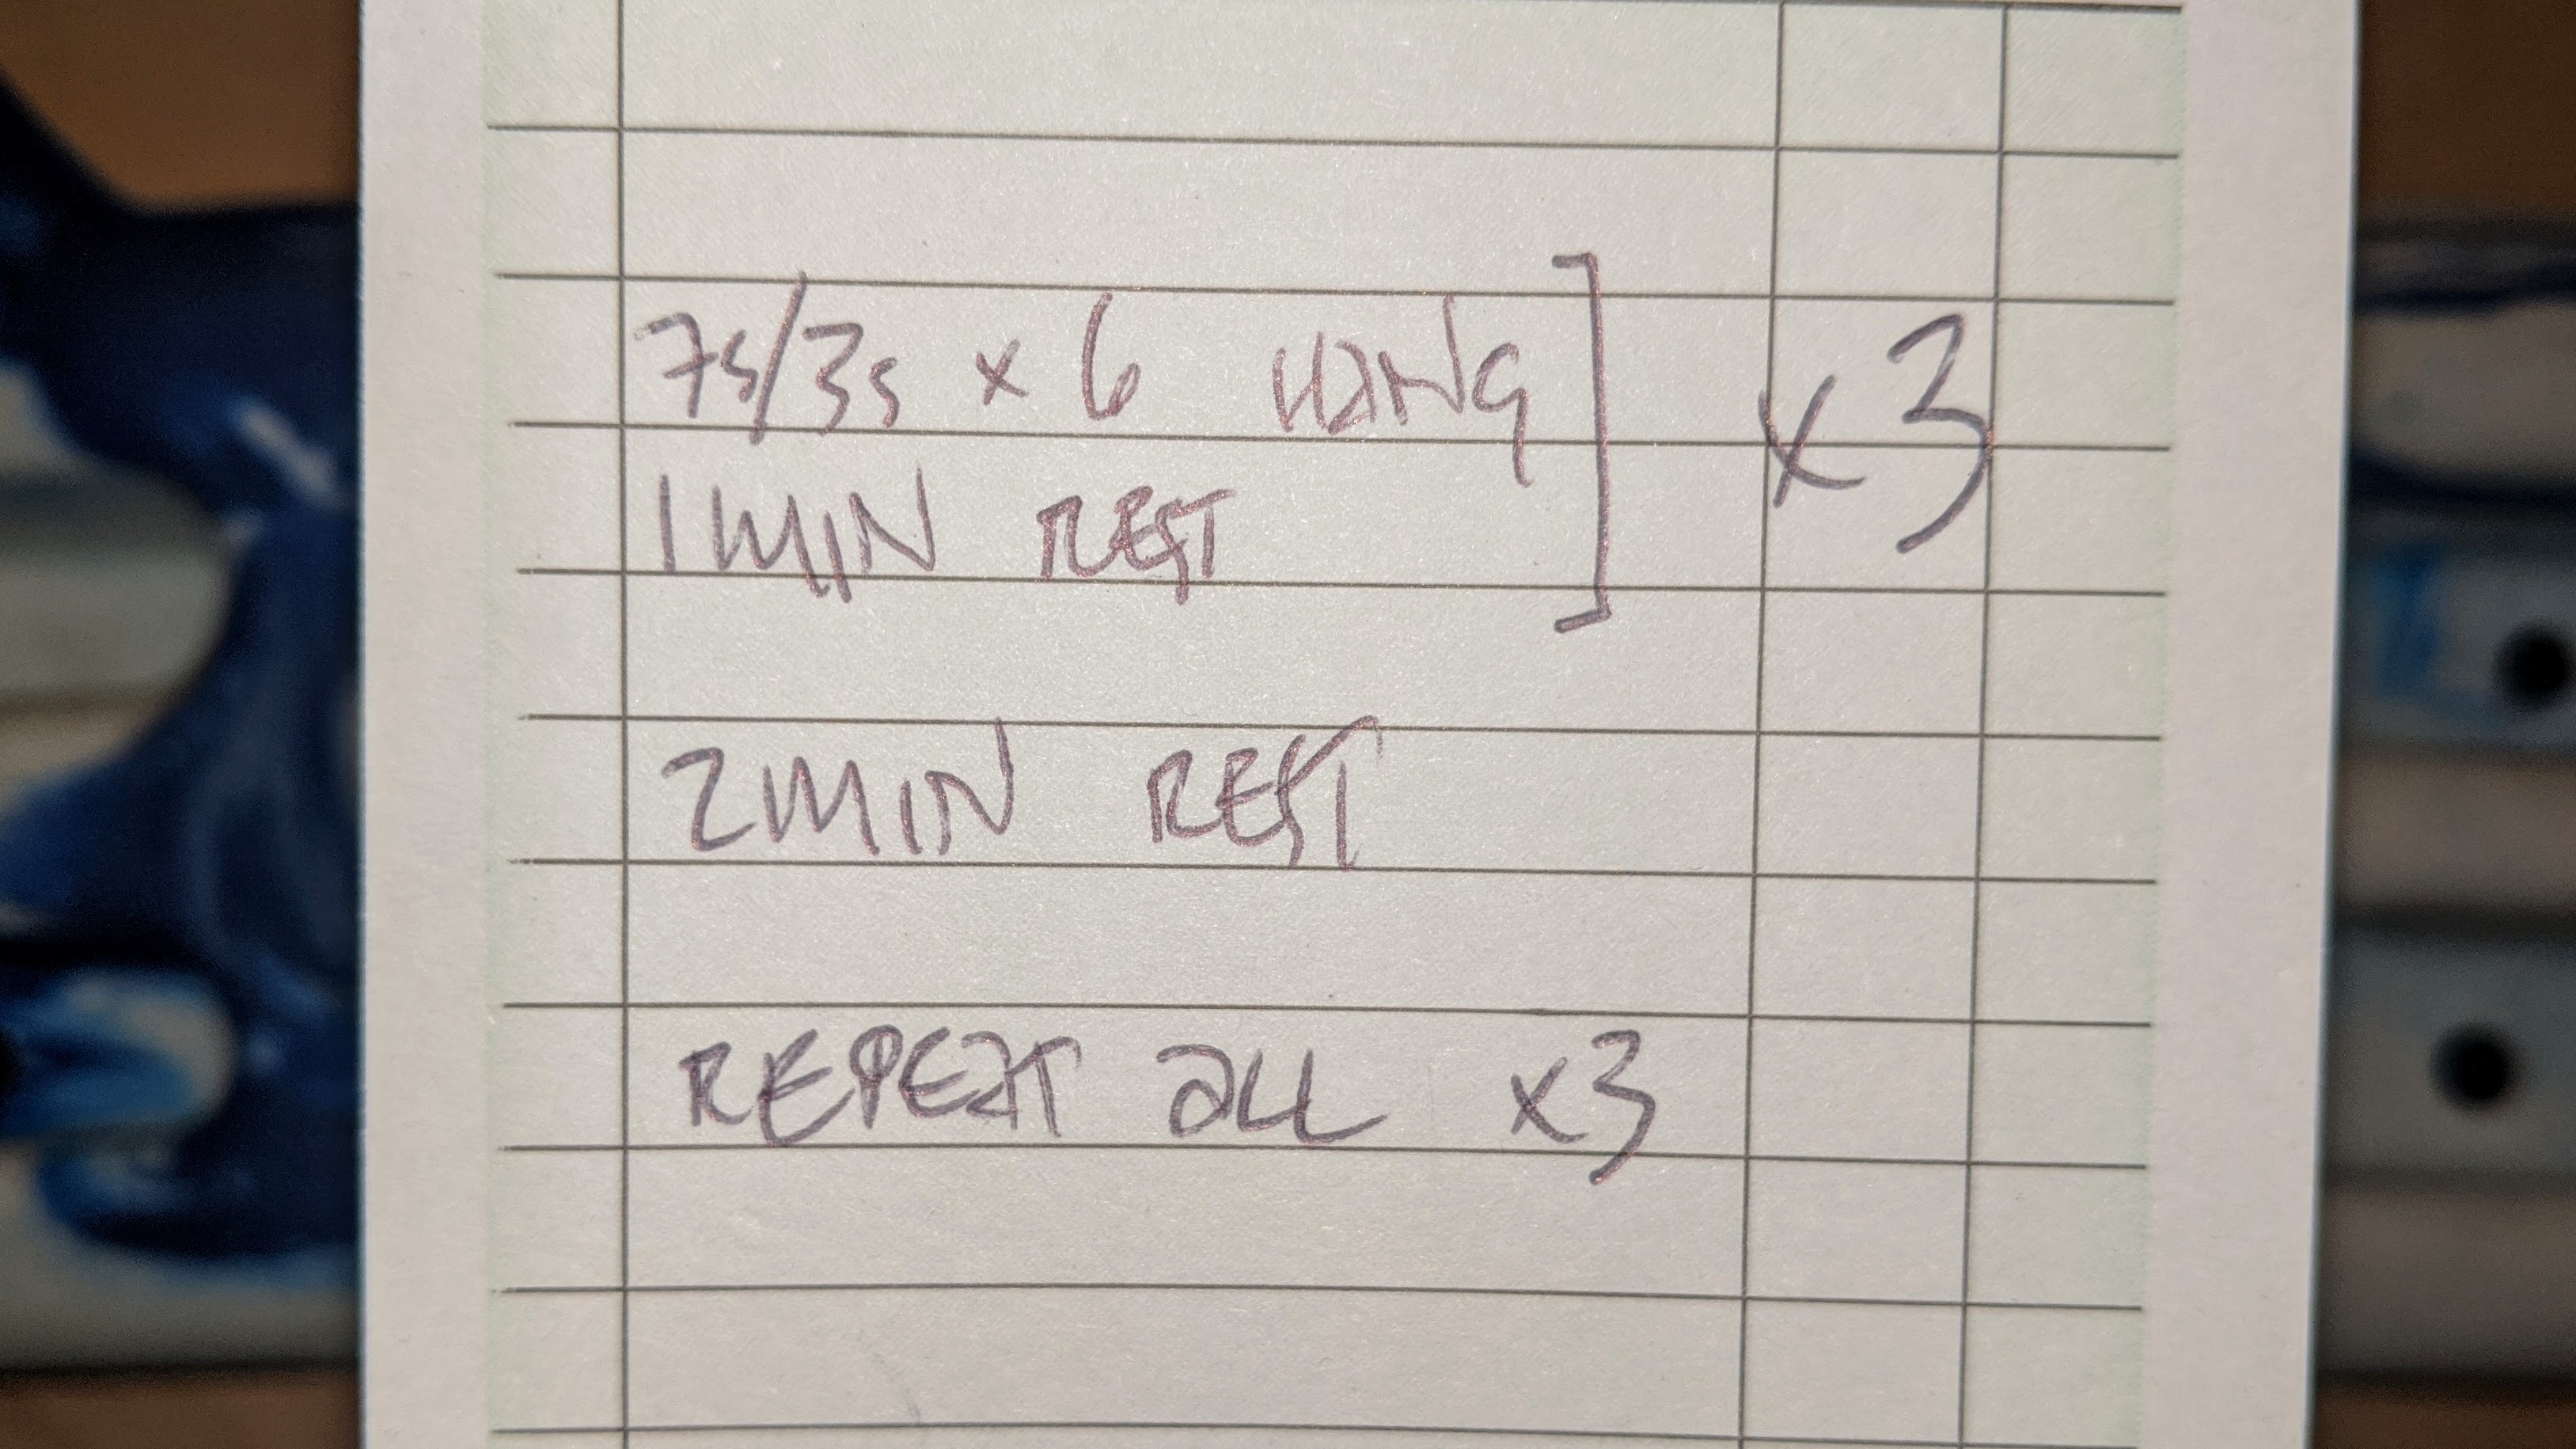 7s/3s x 6 HANG ] x3
1 MIN REST
2 MIN REST
REPEAT ALL x3